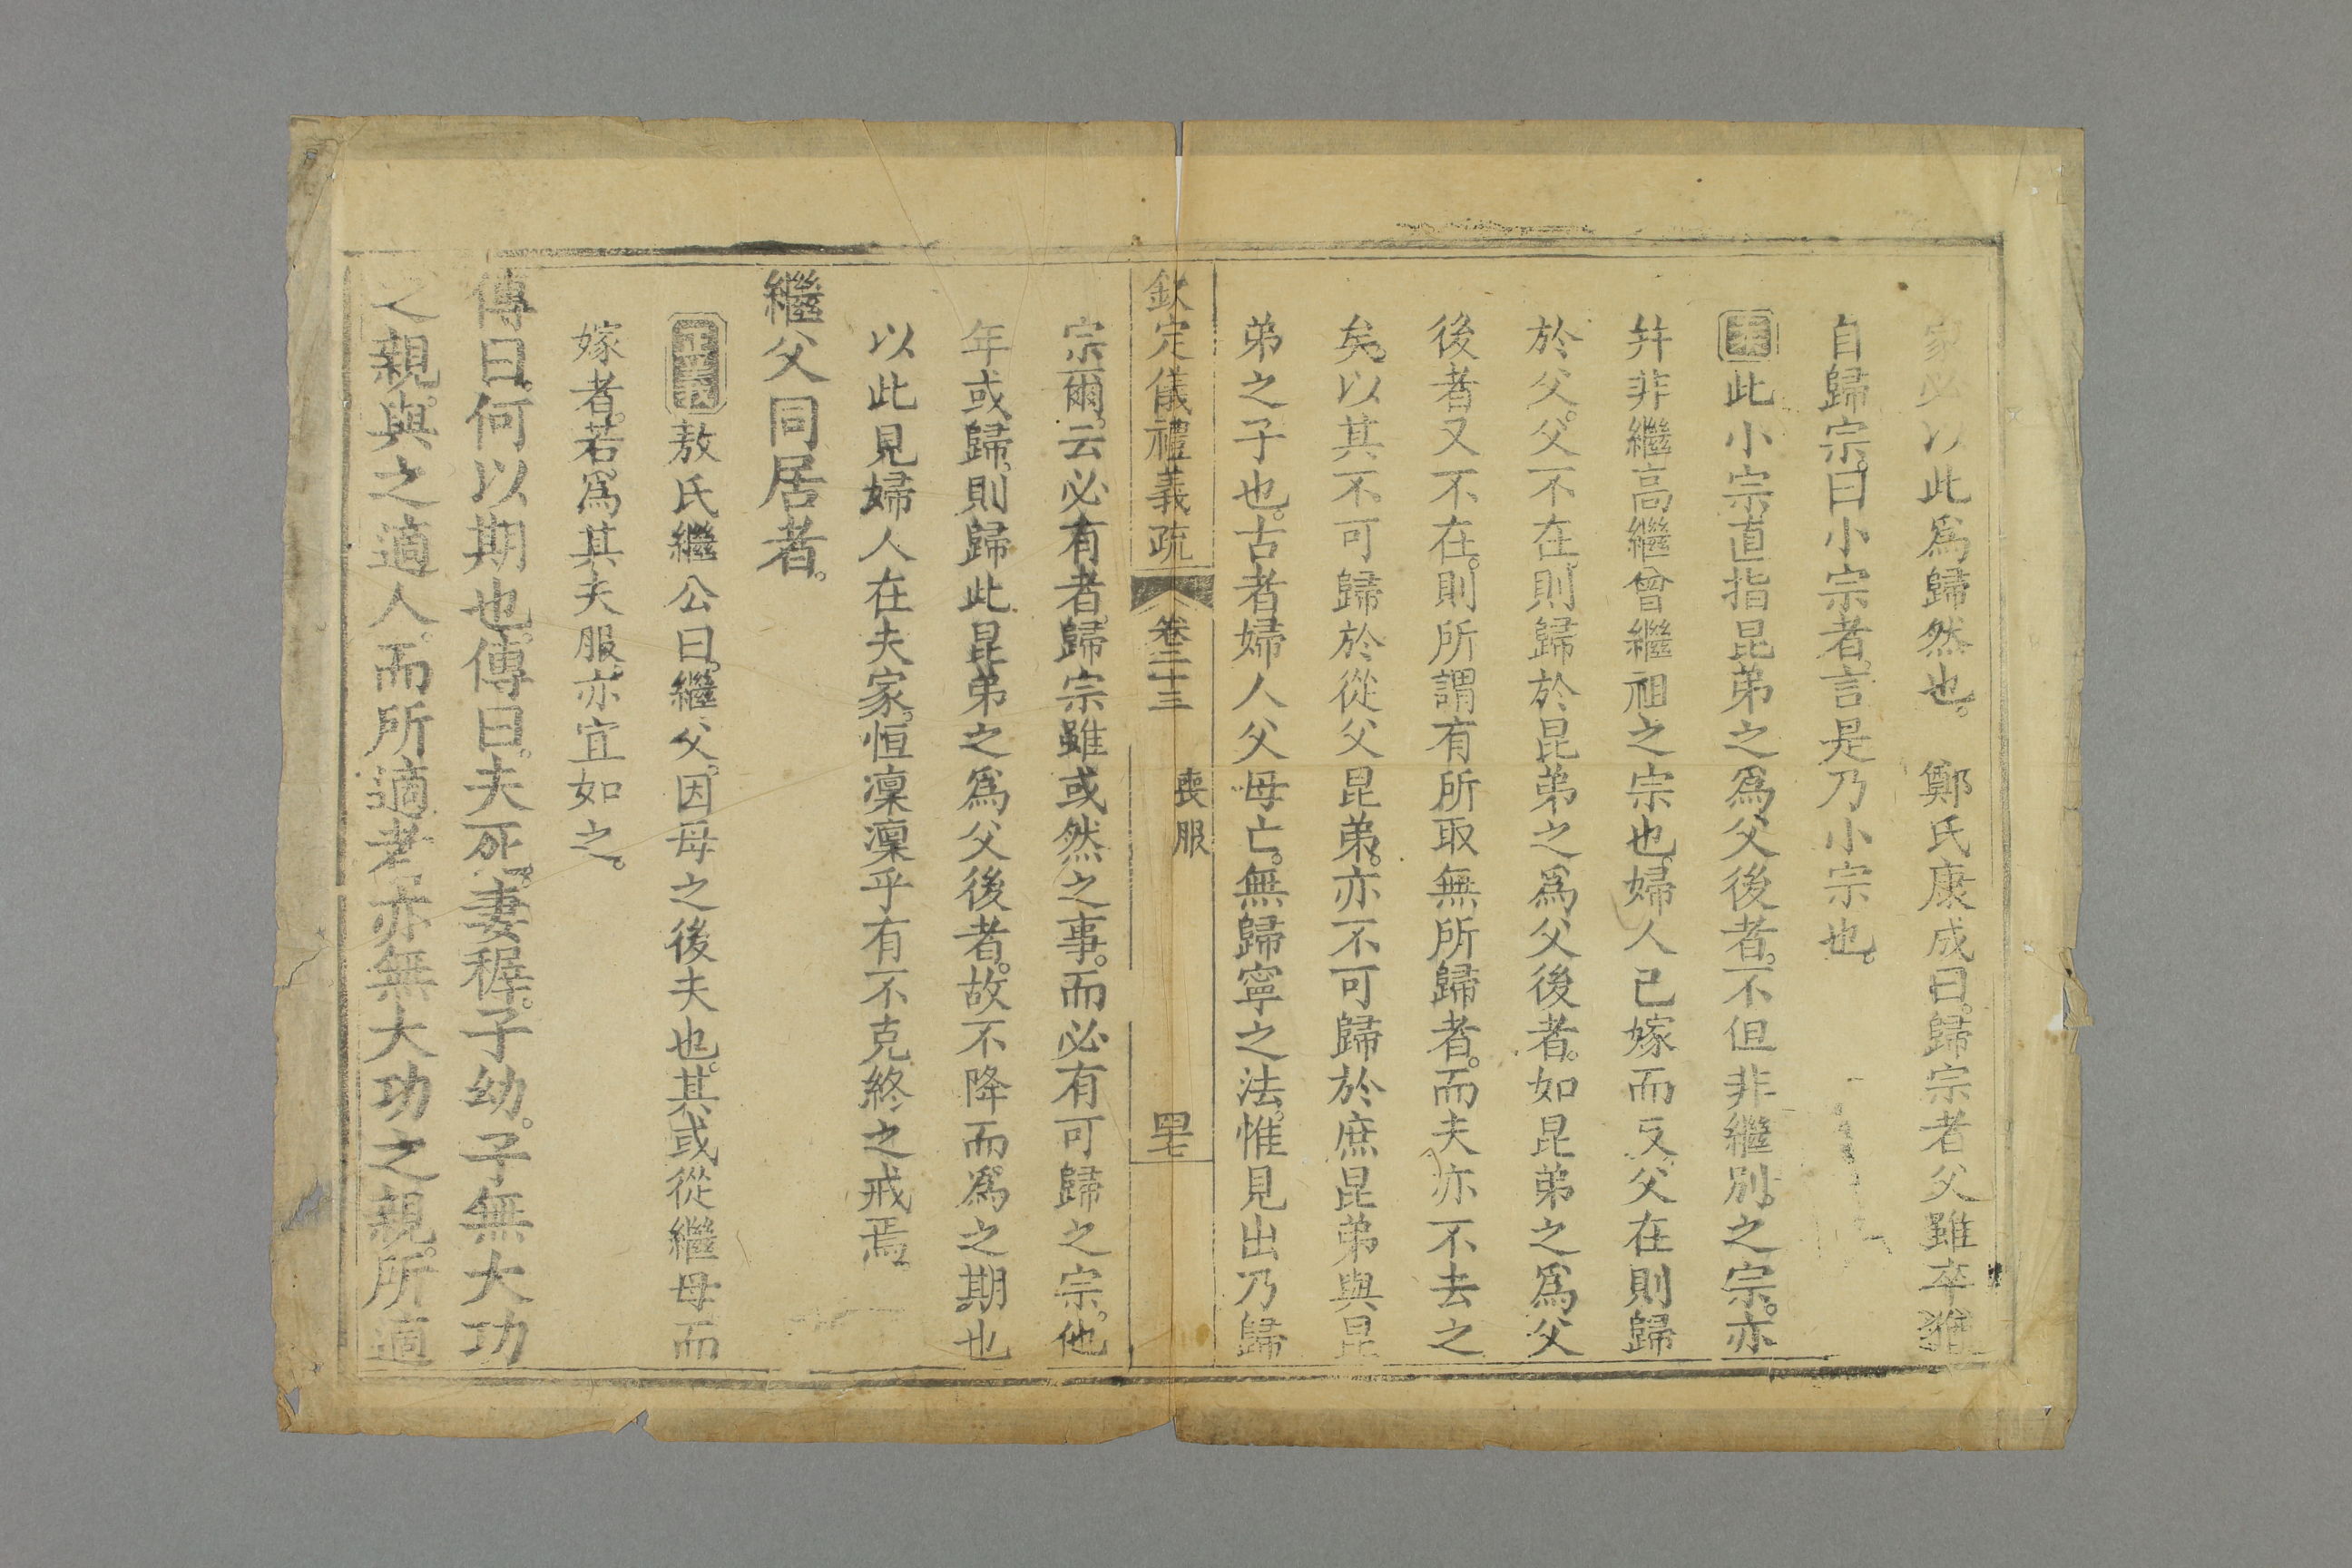 家必以此爲歸然也。 鄭氏康成曰。歸宗者父雖卒猶
自歸宗。曰小宗者。言是乃小宗也。
案此小宗直指昆弟之爲父後者。不但非繼別之宗。亦
幷非繼高繼曾繼祖之宗也。婦人已嫁而反。父在則歸
於父。父不在。則歸於昆弟之爲父後者。如昆弟之爲父
後者又不在。則所謂有所取無所歸者。而夫亦不去之
矣。以其不可歸於從父昆弟。亦不可歸於庶昆弟與昆
弟之子也。古者婦人父母亡。無歸寧之法。惟見出乃歸
欽定儀禮義疏 卷二十三 喪服 四七
宗爾。云必有者。歸宗雖或然之事。而必有可歸之宗。他
年或歸。則歸此昆弟之爲父後者。故不降而爲之期也
以此見婦人在夫家。恒凜凜乎有不克終之戒焉。
繼父同居者。
正義敖氏繼公曰。繼父。因母之後夫也。其或從繼母而
嫁者。若爲其夫服。亦宜如之。
傳曰。何以期也。傳曰。夫死。妻穉。子幼。子無大功
之親。與之適人。而所適者。亦無大功之親。所適